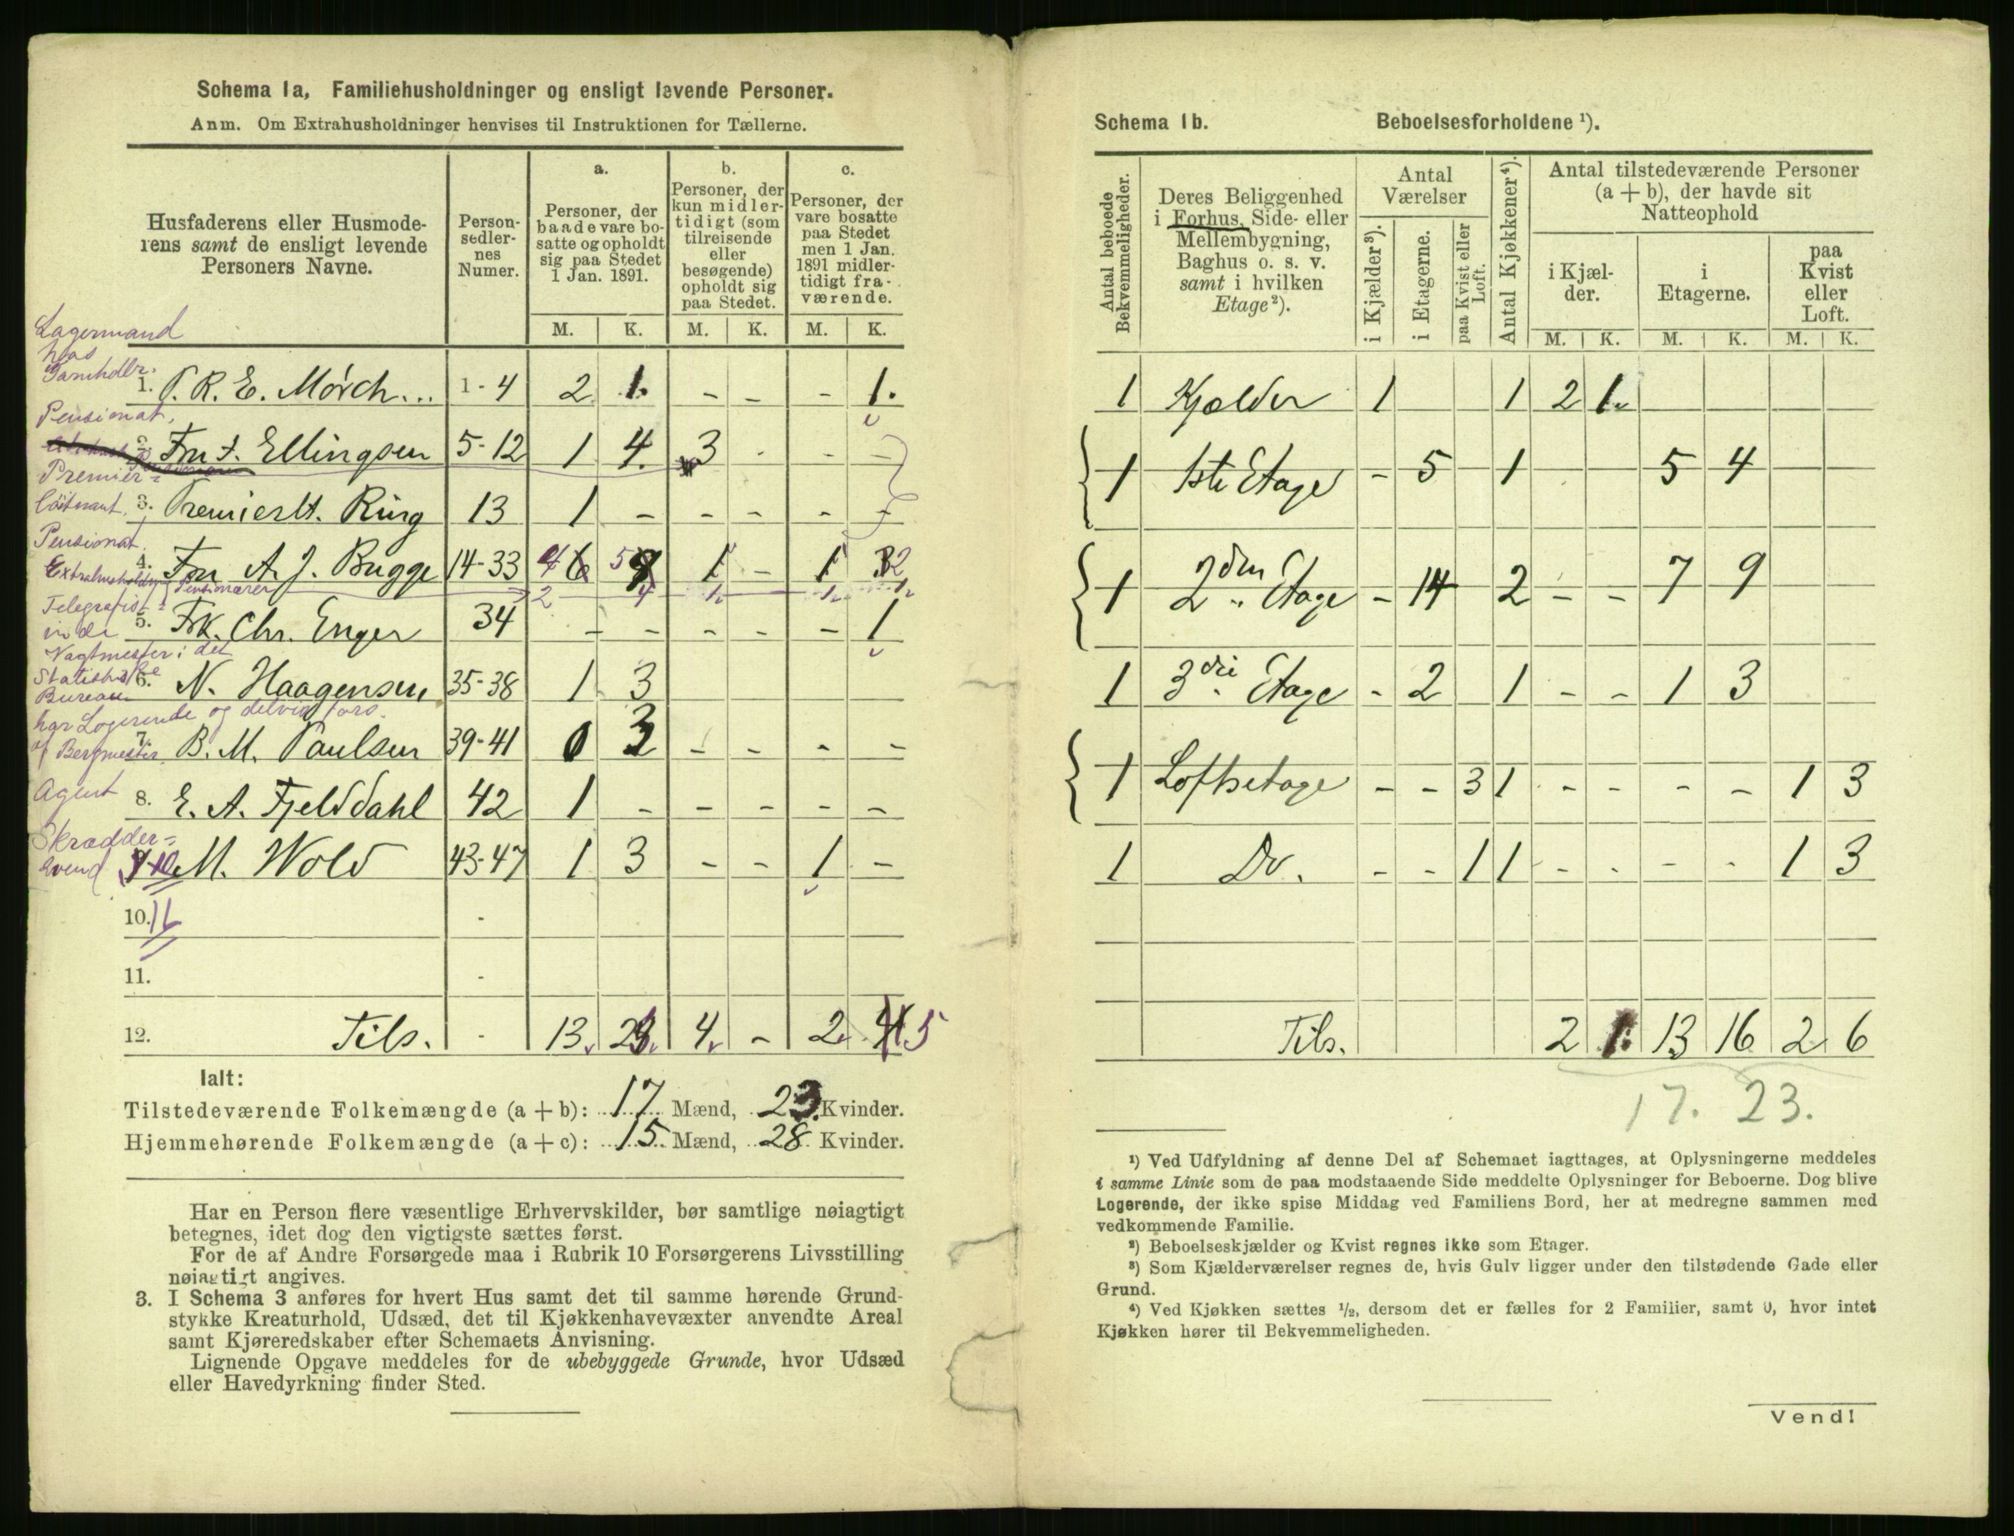 Schema 1a, Familiehusholdninger og ensligt levende Personer.
Anm. Om Extrahusholdninger henvises til Instruktionen for Tællerne.
Husfaderens eller Husmode-
rens samt de ensligt levende
Personers Navne.
Person-
sedler-
nes
Numer.
a.
Personer, der
baade vare bo-
satte og opholdt
sig paa Stedet
1 Jan. 1891.
b.
Personer, der
kun midler-
tidigt (som
tilreisende
eller
besøgende)
opholdt sig
paa Stedet.
c.
Personer, der
vare bosatte
paa Stedet
men 1 Jan.
1891 midler-
tidigt fra-
værende.
M. K. M. K. M. K.
Lagermand
hos
1. P. R. E. Mørch... 1-4 2 1. - - - 1.
Pensionat,
2. Fru F. Ellingsen 5-12 1 4. 3 - - -
Premier=
Löitnant. 3. Premierlt. Ring 13 1 - - - - -
Pensionat,
4. Fru A. J. Bugge 14-33 4 5 1 - 1 2
Extrahusholdn. Pensionærer 2 4 1. 1. 1.
Telegrafist=
inde 5. Frk. Chr. Enger 34 - - - - - 1
Vagtmester i det
Statistiske
Bureau 6. N. Haagensen 35-38 1 3
har Logerende og delvis fors.
af Bergmester 7. B. M. Paulsen 39-41 0 3 - - - -
Agent 8. E. A. Fjelddahl 42 1 - - - - -
Skrædder=
svend 9-10 M. Wold 43-47 1 3 - - 1 -
10. 11 -
11. -
12. Tils. - 13. 23. 4. - 2. 5
Ialt:
Tilstedeværende Folkemængde (a + b): 17 Mænd, 23. Kvinder.
Hjemmehørende Folkemængde (a + c): 15 Mænd, 28 Kvinder.
Har en Person flere væsentlige Erhvervskilder, bør samtlige nøiagtigt
betegnes, idet dog den vigtigste sættes først.
For de af Andre Forsørgede maa i Rubrik 10 Forsørgerens Livsstilling
nøiagtigt angives.
3. I Schema 3 anføres for hvert Hus samt det til samme hørende Grund-
stykke Kreaturhold, Udsæd, det til Kjøkkenhavevæxter anvendte Areal
samt Kjøreredskaber efter Schemaets Anvisning.
Lignende Opgave meddeles for de ubebyggede Grunde, hvor Udsæd
eller Havedyrkning finder Sted.
Schema 1b. Beboelsesforholdene ¹).
Antal beboede
Bekvemmeligheder.
Deres Beliggenhed
i Forhus, Side- eller
Mellembygning,
Baghus o. s. v.
samt i hvilken
Etage²).
Antal
Værelser
i Kjælder³).
i Etagerne.
paa Kvist eller
Loft.
Antal Kjøkkener⁴).
Antal tilstedeværende Personer
(a + b), der havde sit
Natteophold
i Kjæl-
der.
i
Etagerne.
paa
Kvist
eller
Loft.
M. K. M. K. M. K.
1 Kjælder 1 1 2 1.
1 1ste Etage - 5 1 5 4
1 2den Etage - 14 2 - - 7 9
1 3die Etage - 2 1 - - 1 3
1 Loftsetage - - 3 1 - - - - 1 3
1 Do. - - 1 1 - - - - 1 3
Tils. 2 1. 13 16 2 6
17. 23.
¹) Ved Udfyldning af denne Del af Schemaet iagttages, at Oplysningerne meddeles
i samme Linie som de paa modstaaende Side meddelte Oplysninger for Beboerne. Dog blive
Logerende, der ikke spise Middag ved Familiens Bord, her at medregne sammen med
vedkommende Familie.
²) Beboelseskjælder og Kvist regnes ikke som Etager.
³) Som Kjælderværelser regnes de, hvis Gulv ligger under den tilstødende Gade eller
Grund.
⁴) Ved Kjøkken sættes ½, dersom det er fælles for 2 Familier, samt 0, hvor intet
Kjøkken hører til Bekvemmeligheden.
Vend!